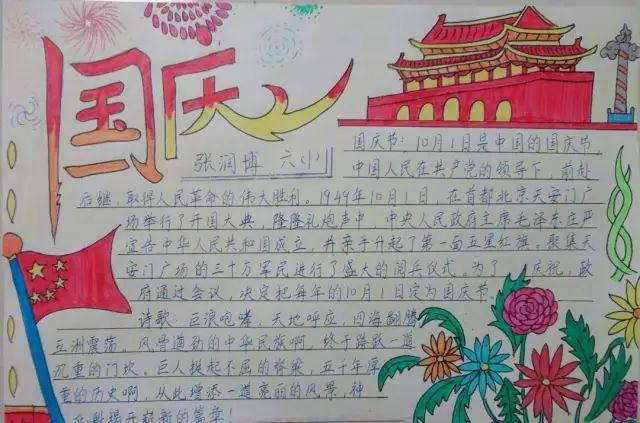 国庆
张润博 六(1)
国庆节：10月1日是中国的国庆节，
中国人民在共产党的领导下，前赴
后继，取得人民革命的伟大胜利。1949年10月1日，在首都北京天安门广
场举行了开国大典，隆隆礼炮声中，中央人民政府主席毛泽东庄严
宣告中华人民共和国成立，并亲手升起了第一面五星红旗。聚集天
安门广场的三十万军民进行了盛大的阅兵仪式。为了 庆祝，政
府通过会议，决定把每年的10月1日定为国庆节
诗歌：巨浪咆哮，天地呼应，四海翻腾
五洲震荡。风骨遒劲的中华民族啊，终于踏跋一道
沉重的门坎。巨人挺起不屈的脊梁，五千年厚
重的历史啊，从此增添一道亮丽的风景，神
揭开崭新的篇章！